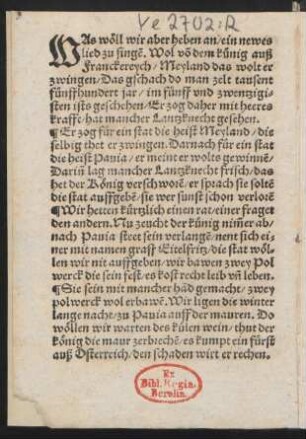 Ye 2702:R
WAs wöll wir aber heben an/ein newes
lied zu singē. Wol vō dem künig auß
Franckereych/Meyland das wolt er
zwingen/Das gschach do man zelt tausent
fünffhundert jar/im fünff vnd zwentzigi-
sten ists geschehen/Er zog daher mit heeres
krafft/hat mancher Lantzknecht gesehen.
¶Er zog für ein stat die heist Meyland/die
selbig thet er zwingen. Darnach für ein stat
die heist Pauia/er meint er wolts gewinnē/
Dariñ lag mancher Lantzknecht frisch/das
het der König verschworē/er sprach sie soltē
die stat auffgebē/sie wer sunst schon verlorē
¶Wir hetten kürtzlich einen rat/einer fraget
den andern. Nu zeucht der künig niṁer ab/
nach Pauia steet jein verlangē/nent sich ei-
ner mit namen graff Eitelfritz/die stat wöl-
len wir nit auffgeben/wir bawen zwey Pol
werck die sein fest/es kost recht leib vñ leben.
¶Sie sein mit mancher hād gemacht/zwey
polwerck wol erbawē. Wir ligen die winter
lange nacht/zu Pauia auff der mauren. Do
wöllen wir warten des külen wein/thut der
könig die maur zerbrechē/es kumpt ein fürst
auß Österreich/den schaden wirt er rechen.
Ex
Bibl. Regia
Berolin.